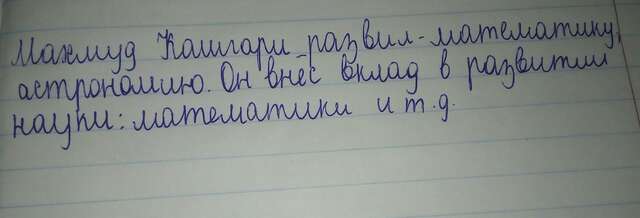 Махмуд Кашгари развил-математику,
астрономию. Он внёс вклад в развитии
науки: математики и т.д.